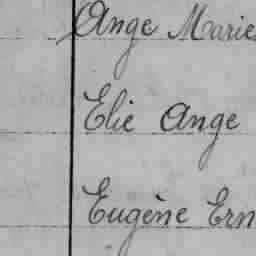 Ange Marie
Elie Ange
Eugène Ern